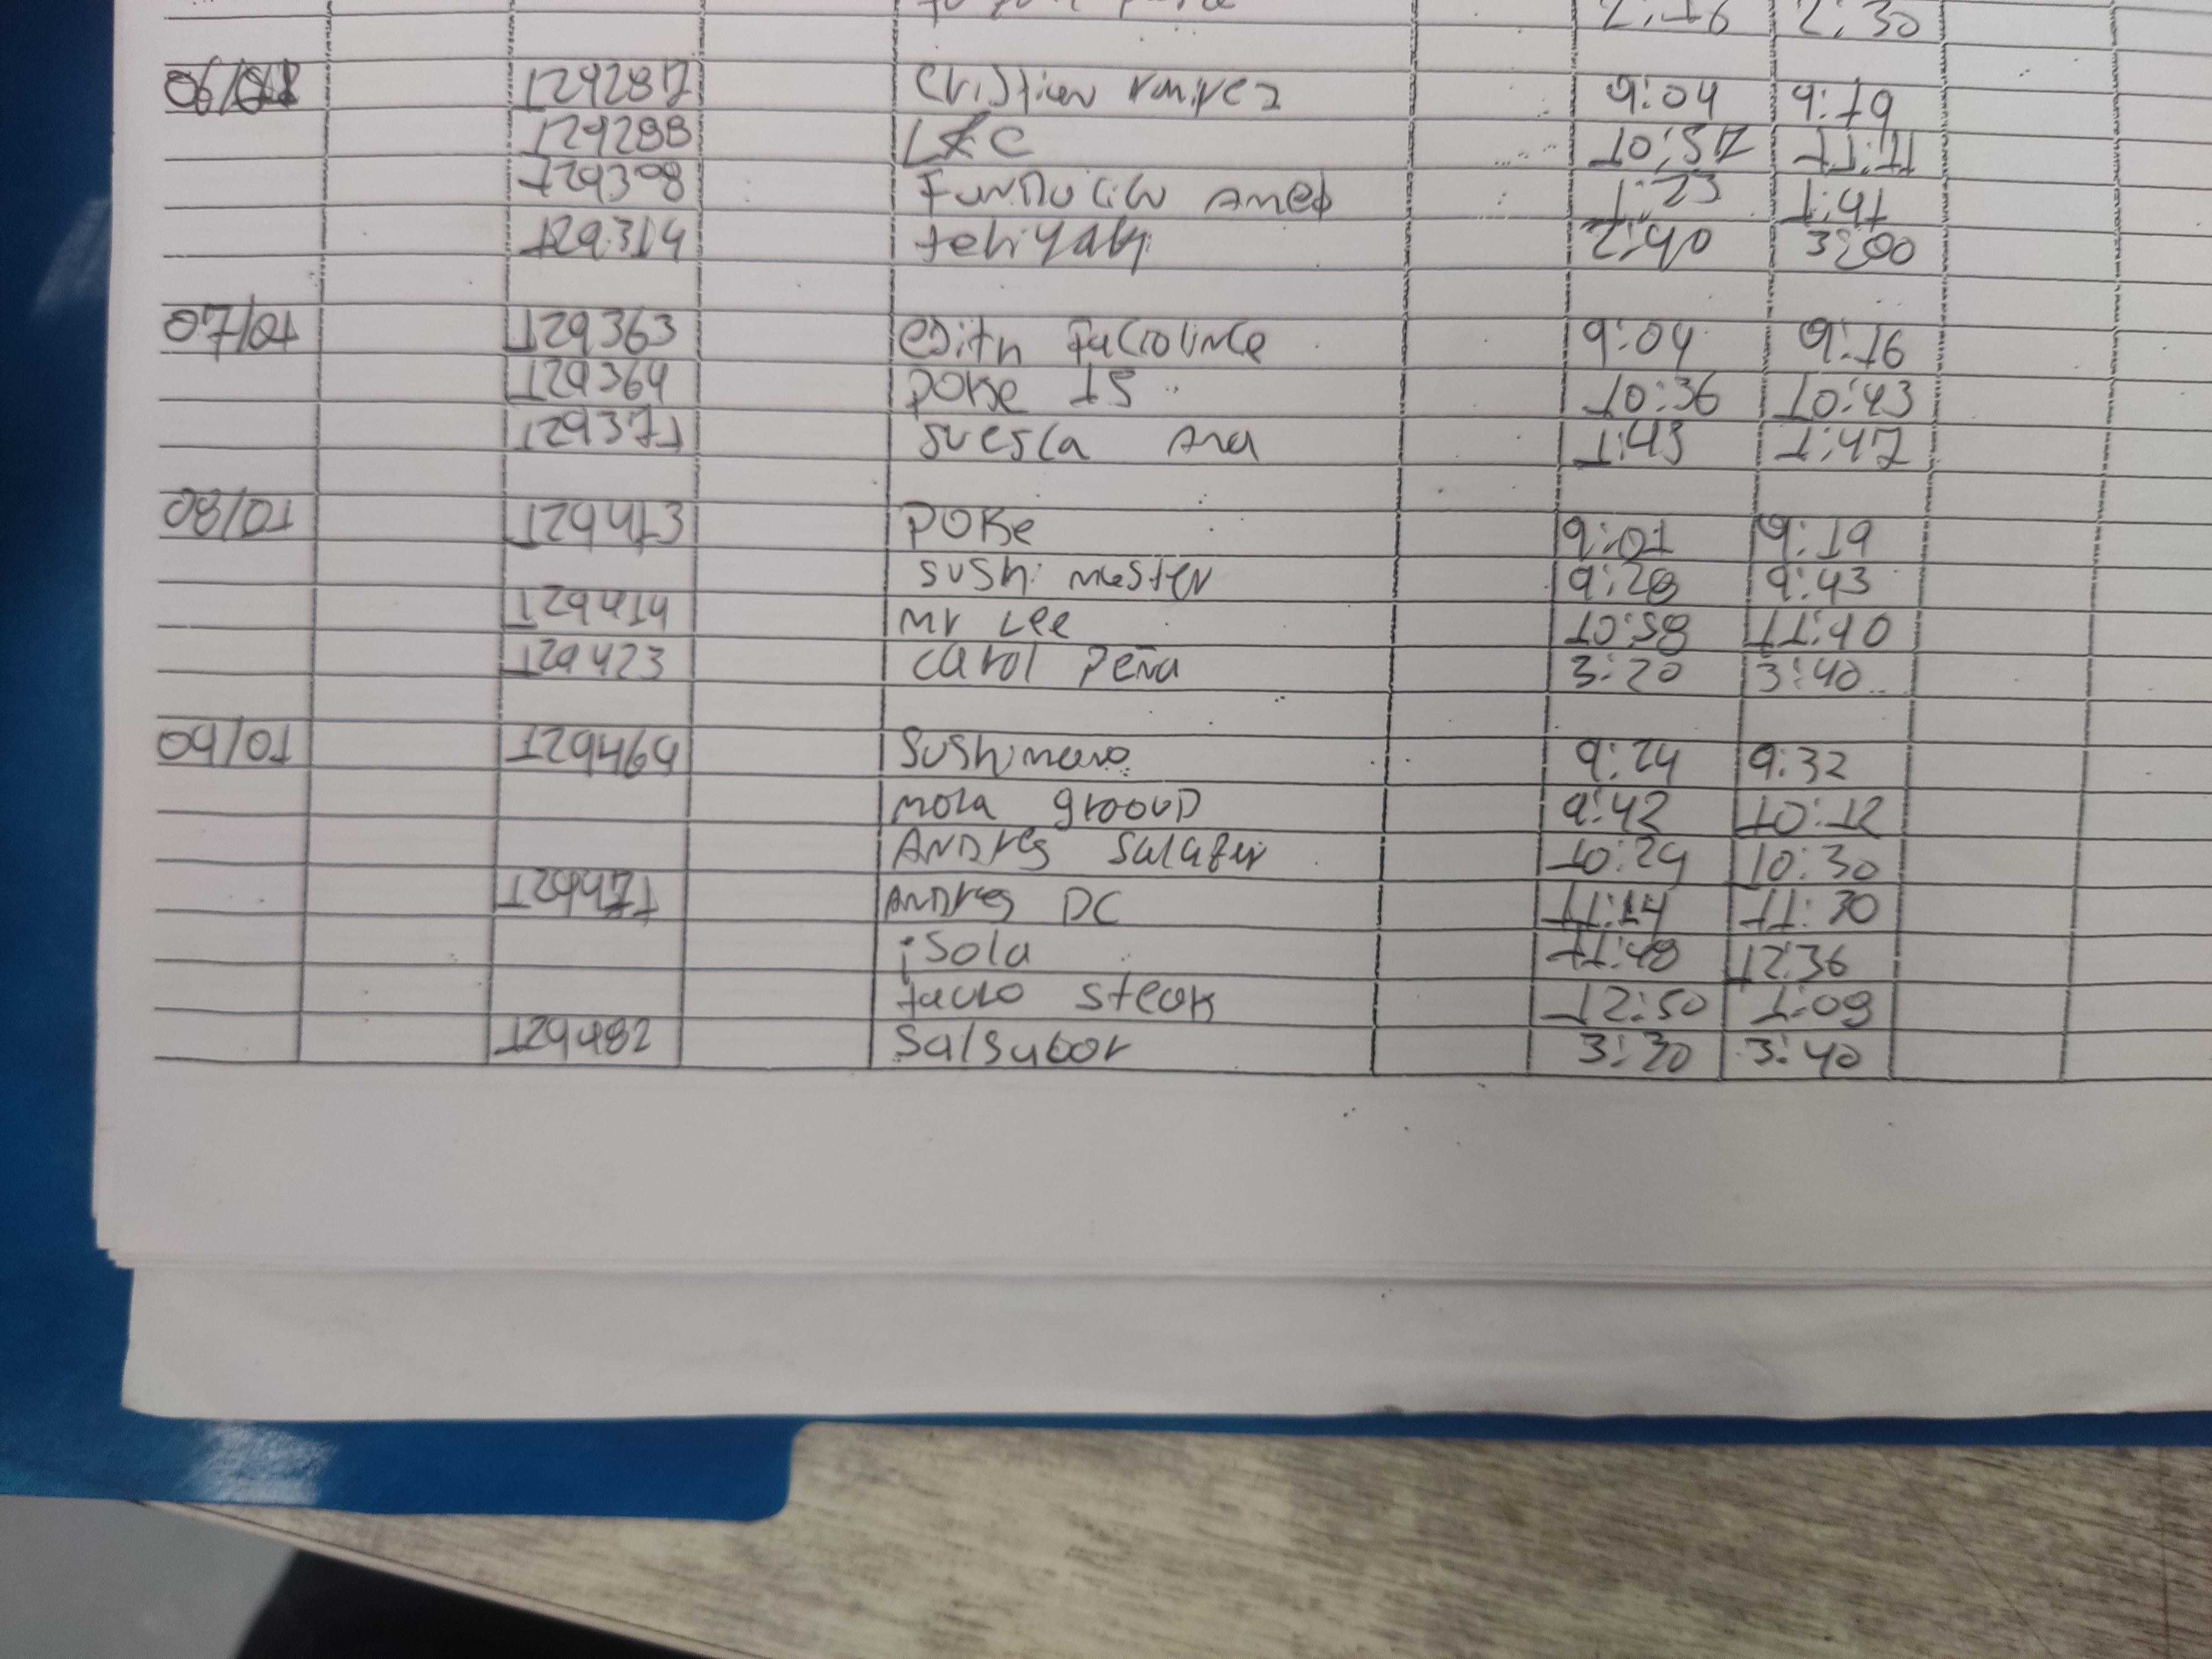 2:16 2:30
06/01 129287 Cristian ramirez 9:04 9:19
129288 LXC 10:51 11:11
129308 Funducion Amed 1:23 1:41
129314 teriyaki 2:40 3:00
07/01 129363 edith 9:04 9:16
129364 POKe 15 10:36 10:43
129371 suesca Ana 1:43 1:47
08/01 129413 POKe 9:01 9:19
sushi master 9:28 9:43
129414 Mr Lee 10:58 11:40
129423 carol Peña 3:20 3:40
09/01 129469 Sushimaro 9:24 9:32
mora grooup 9:42 10:12
ANDres Salazar 10:24 10:30
129471 ANDres DC 11:14 11:30
isola 11:48 12:36
steak 12:50 1:09
129482 Salsabor 3:30 3:40